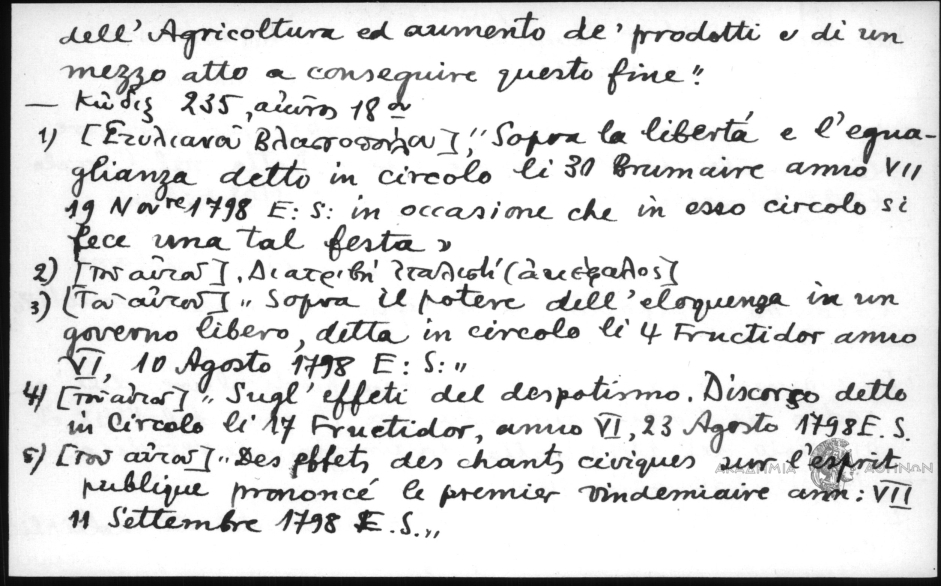 dell' Agricoltura ed aumento de' prodotti e di un
mezzo atto a conseguire questo fine"
— Κῶδιξ 235, αἰῶνος 18ου
1) [Στυλιανοῦ Βλασσοπούλου], "Sopra la libertá e l'egua-
glianza detto in circolo li 30 Brumaire anno VII
19 Novre 1798 E: S: in occasione che in esso circolo si
fece una tal festa"
2) [τοῦ αὐτοῦ]. Διατριβὴ ἰταλιστί (ἀκέφαλος]
3) [Τοῦ αὐτοῦ] "Sopra il potere dell'eloquenza in un
governo libero, detta in circolo li 4 Fructidor anno
VI, 10 Agosto 1798 E: S:"
4) [τοῦ αὐτοῦ] "Sugl' effeti del despotismo. Discorso detto
in Circolo li 17 Fructidor, anno VI, 23 Agosto 1798 E. S.
5) [τοῦ αὐτοῦ] "Des effets des chants civiques sur l'esprit
publique prononcé le premier vindemiaire ann: VII
11 Settembre 1798 E.S."
ΑΚΑΔΗΜΙΑ ΑΘΗΝΩΝ